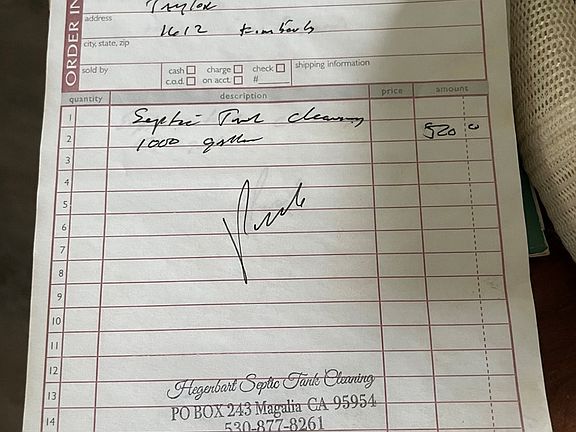 Taylor
address
1612 Kimberly
city, state, zip
ORDER IN
sold by
cash charge check
c.o.d. on acct. #
shipping information
quantity description price amount
1 Septic Tank cleaning
2 1000 gallon 520 0
3
4
5
6
7
8
9
10
11
12
13
14
Hegenbart Septic Tank Cleaning
PO BOX 243 Magalia CA 95954
530-877-8261